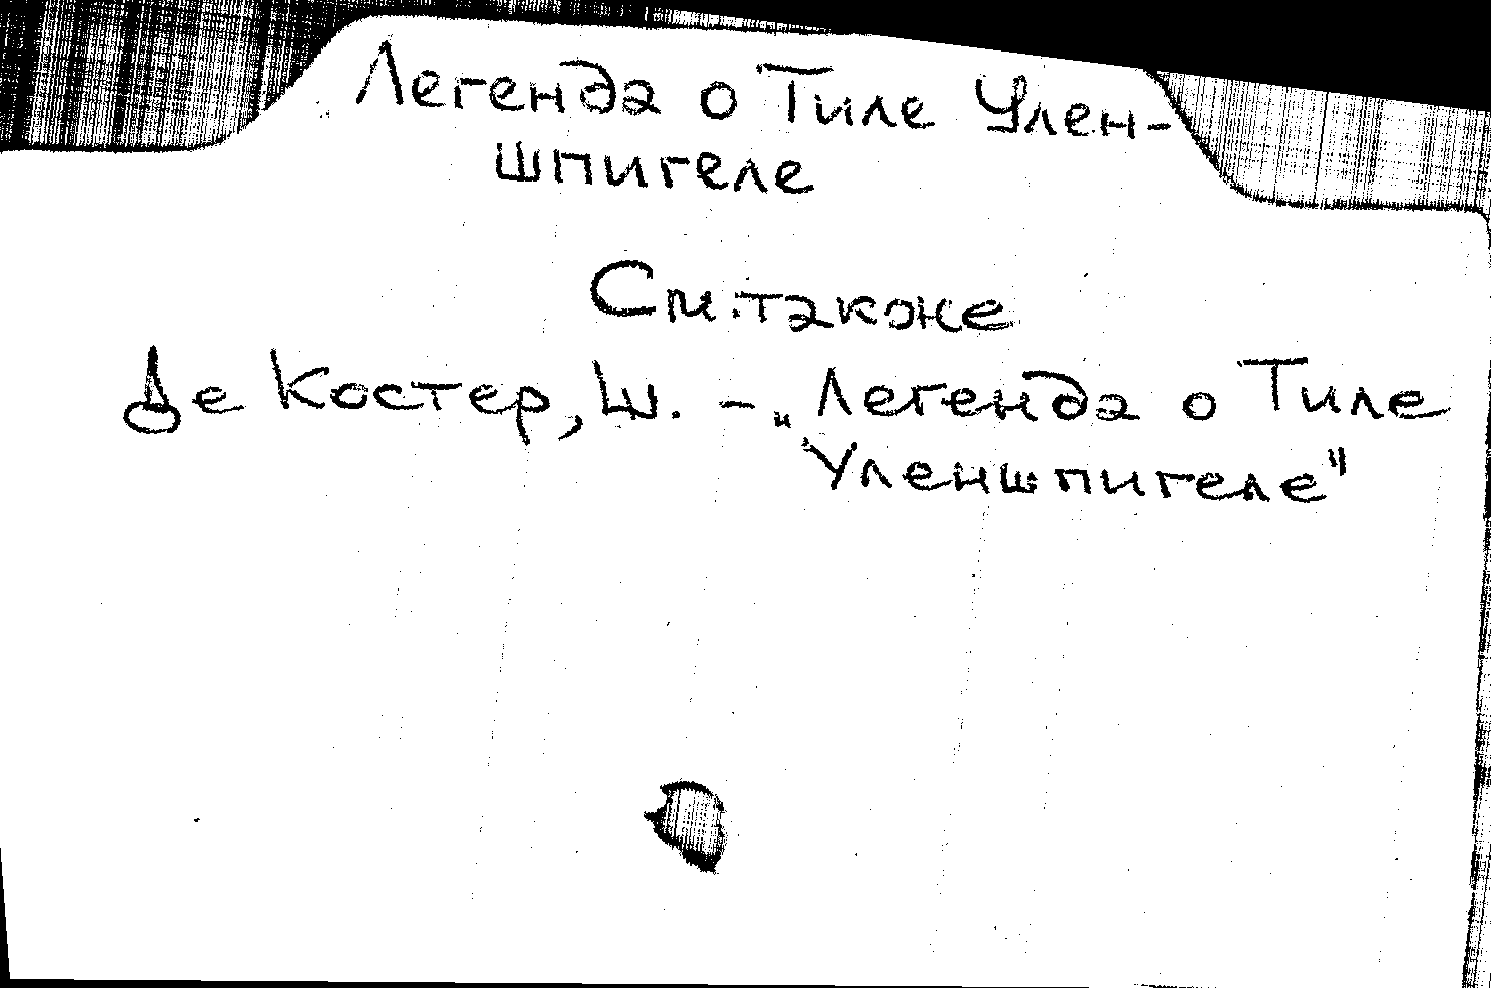 Легенда о Тиле Улен-
шпигеле
См. также
Де Костер, Ш. - „Легенда о Тиле
Уленшпигеле"